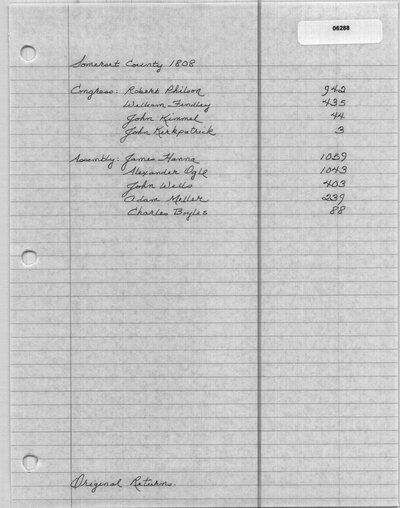 06288
Somerset County 1808
Congress: Robert Philson 942
William Findley 435
John Kimmel 44
John Kirkpatrick 3
Assembly: James Hanna 1059
Alexander Ogle 1043
John Wells 403
Adam Meller 239
Charles Boyles 88
Original Returns.